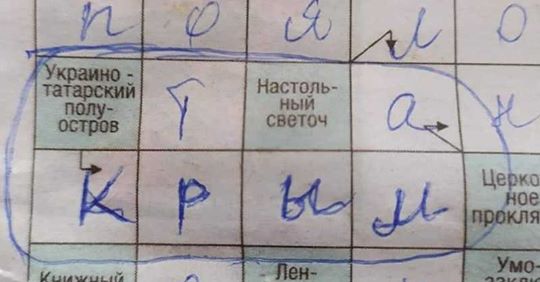 П О Я Л О
Украино-
татарский
полу-
остров
Т
Настоль-
ный
светоч
А Н
К Р Ы М
Церко
ное
прокля
Книжный
Лен-
Умо-